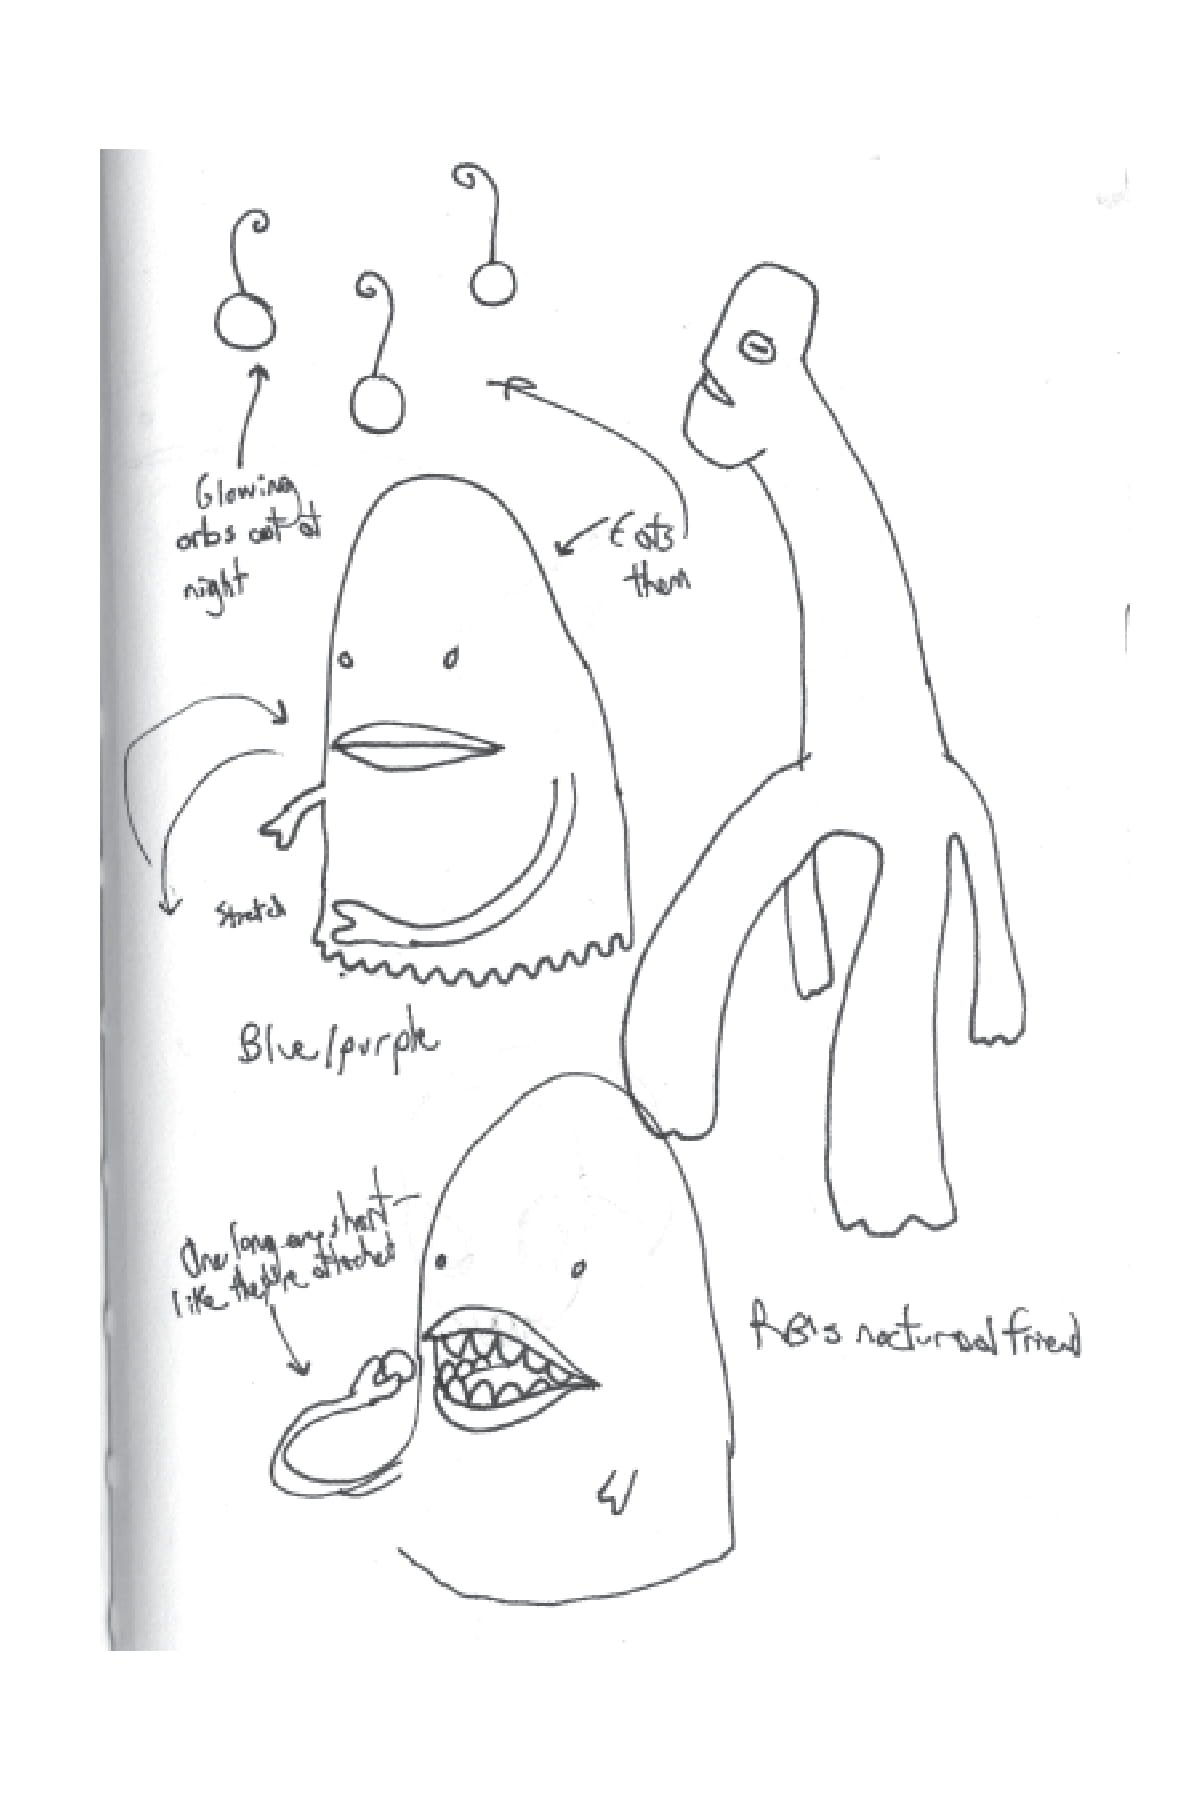 Glowing
orbs out at
night
Eats
them
Stretch
Blue/purple
One long arm, short
like they're attached
nocturnal friend